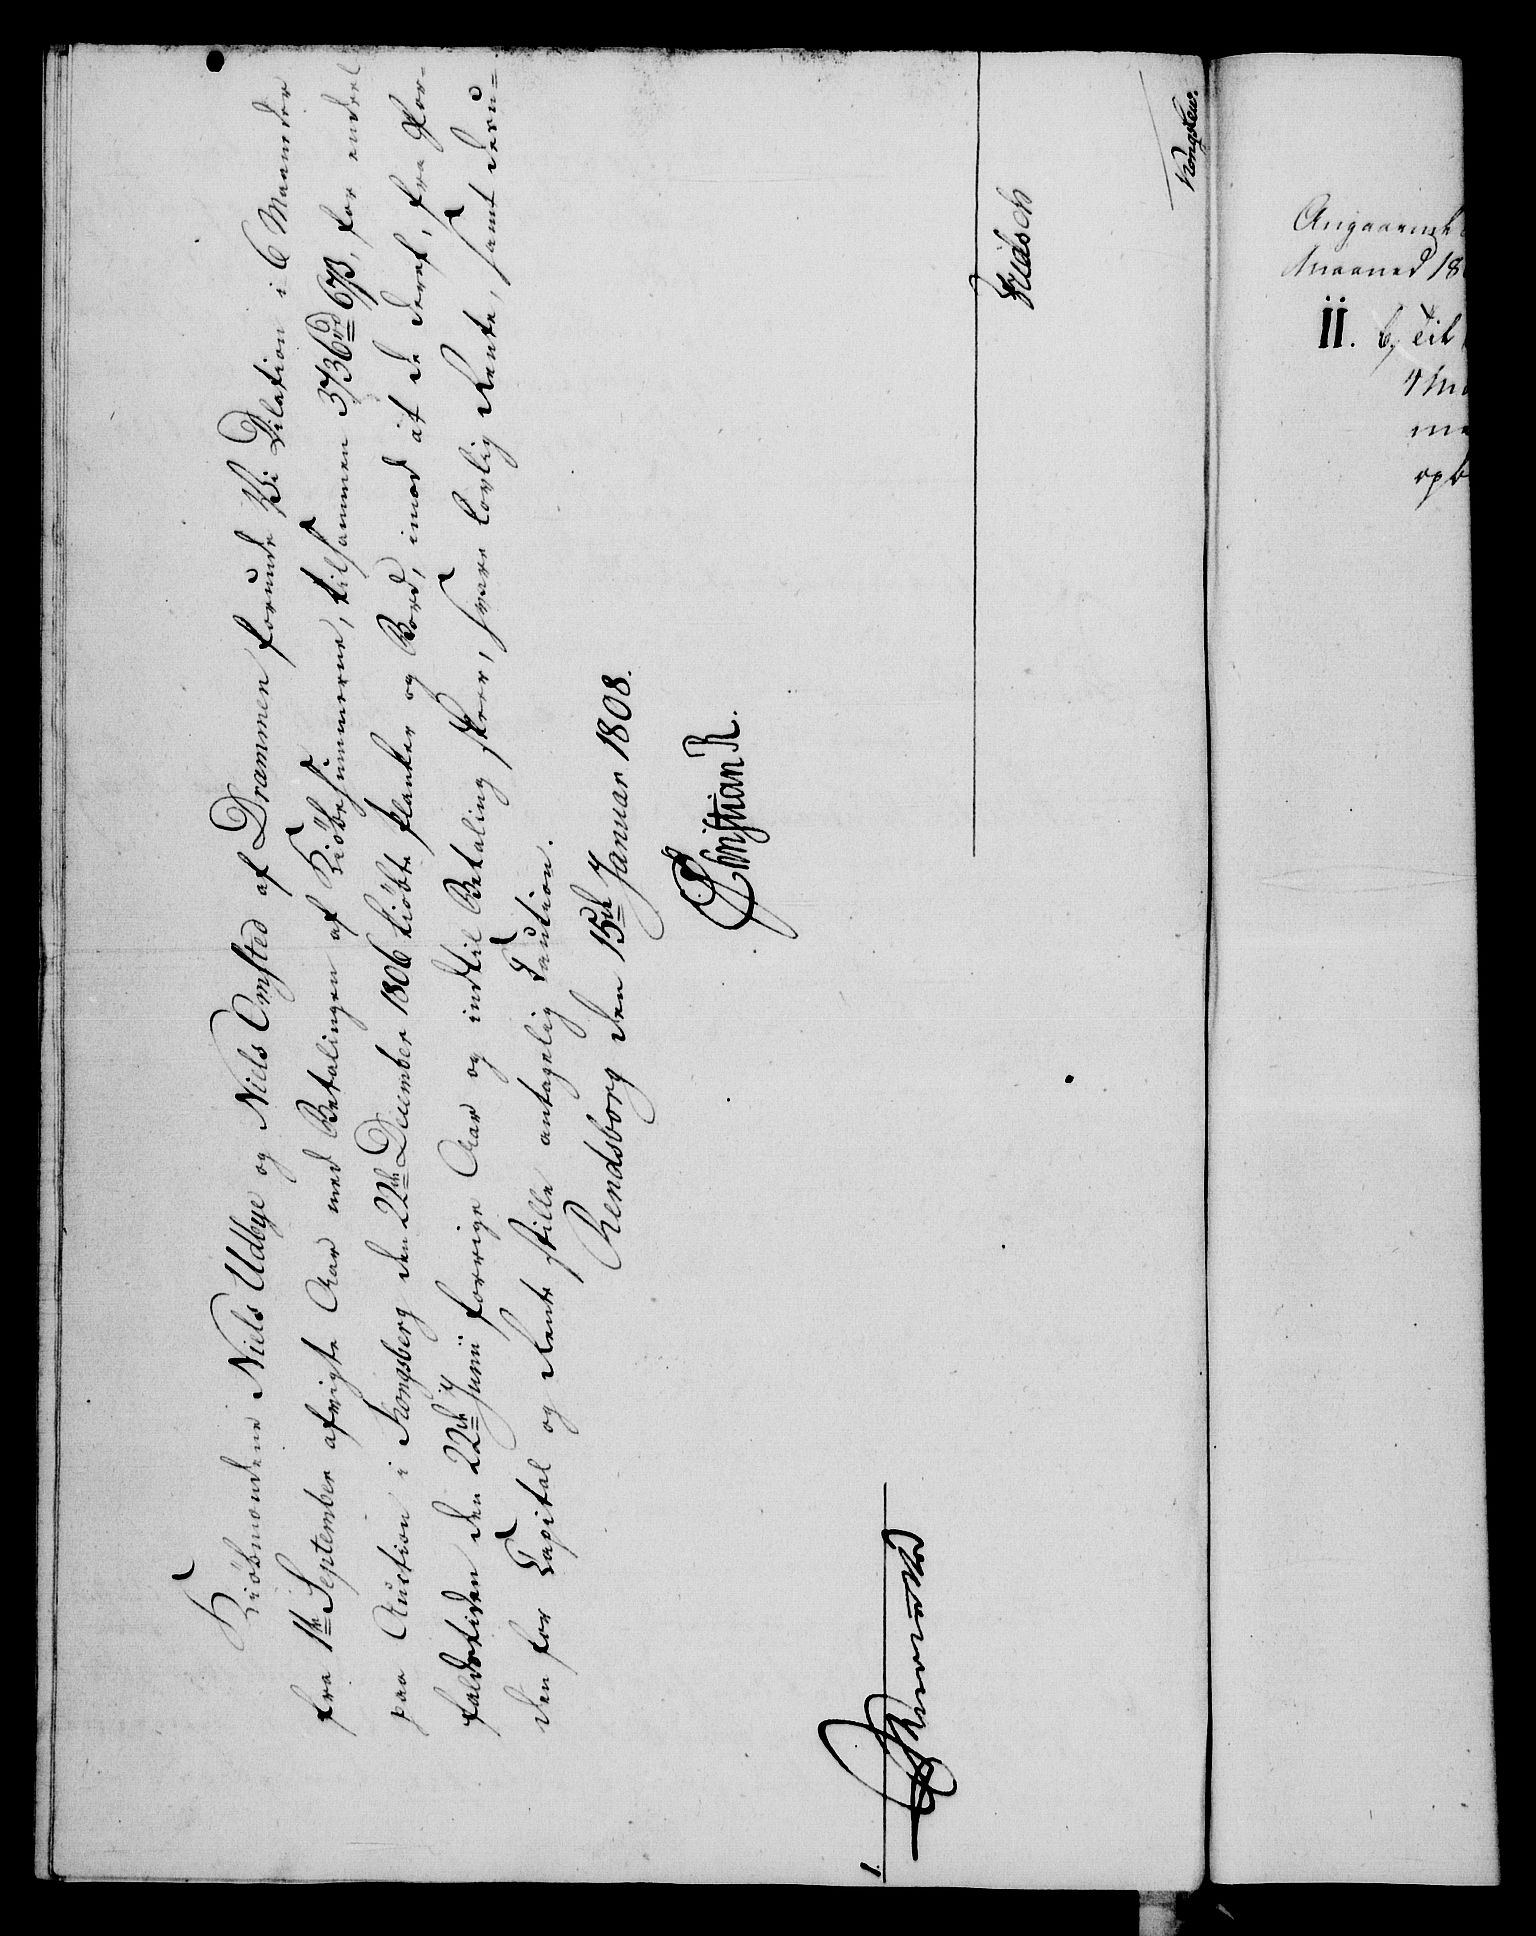 Kiöbmændene Niels Udbye og Niels Omsted af Drammen forunde Vi Dilation i 6 Maaneder
fra 1te September afvigte Aar med Betalingen af Kiöbesummerne, tilsammen 3736 rd 67 ß, for endeel
paa Auction i Kongsberg den 22de December 1806 kiöbte Planker og Bord, imod at de deraf, fra For-
faldstiden den 22de Junii forrige Aar og indtil Betaling skeer, svare lovlig Rente, samt desu-
den for Capital og Rente stille antagelig Caution.
Rendsborg den 15de Januar 1808.
Christian R.
1.
Angaaende
Maaned 18
II. b, Til
4 Ma
op b